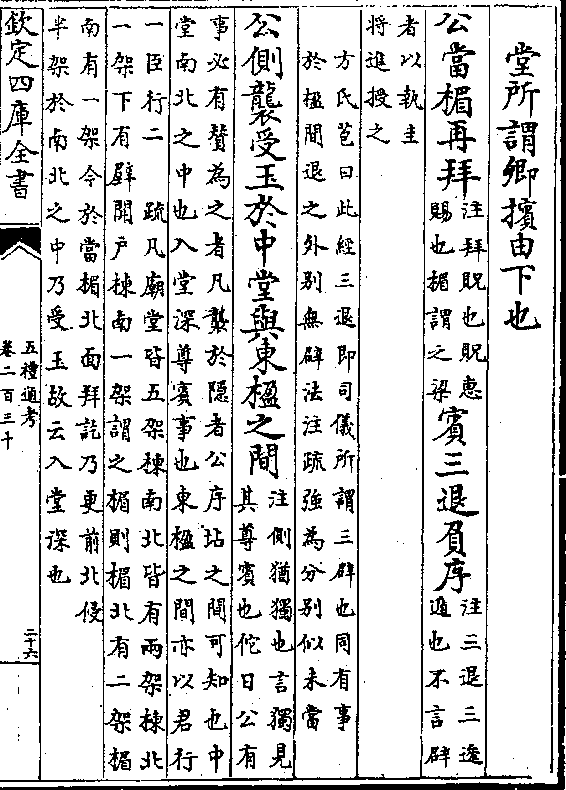 堂所謂卿擯由下也
公當楣再拜
注拜貺也貺惠
賜也楣謂之梁
賓三退負序
注三退三逡
遁也不言辟
者以執圭
將進授之
方氏苞曰此經三退即司儀所謂三辟也同有事
於楹間退之外別無辟法注疏強為分別似未當
公側襲受玉於中堂與東楹之間
注側猶獨也言獨見
其尊賓也佗日公有
事必有贊為之者凡襲於隱者公序坫之間可知也中
堂南北之中也入堂深尊賓事也東楹之間亦以君行
一臣行二 疏凡廟堂皆五架棟南北皆有兩架棟北
一架下有壁開戶棟南一架謂之楣則楣北有二架楣
南有一架今於當楣北面拜訖乃更前北侵
半架於南北之中乃受玉故云入堂深也
欽定四庫全書
五禮通考
卷二百三十
二十六